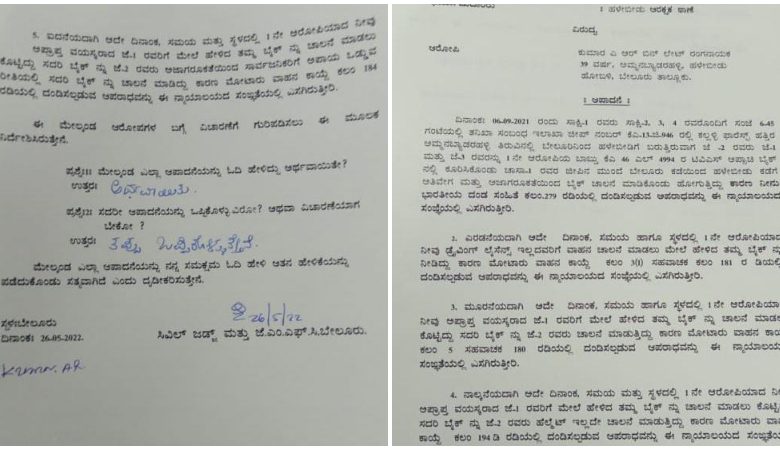 5. ಐದನೆಯದಾಗಿ ಅದೇ ದಿನಾಂಕ, ಸಮಯ ಮತ್ತು ಸ್ಥಳದಲ್ಲಿ 1ನೇ ಆರೋಪಿಯಾದ ನೀವು
ಅಪ್ರಾಪ್ತ ವಯಸ್ಕರಾದ ಜೆ-1 ರವರಿಗೆ ಮೇಲೆ ಹೇಳಿದ ತಮ್ಮ ಬೈಕ್ ನ್ನು ಚಾಲನೆ ಮಾಡಲು
ಕೊಟ್ಟಿದ್ದು ಸದರಿ ಬೈಕ್ ನ್ನು ಜೆ-2 ರವರು ಅಜಾಗರೂಕತೆಯಿಂದ ಸಾರ್ವಜನಿಕರಿಗೆ ಅಪಾಯ ಒಡ್ಡುವ
ರೀತಿಯಲ್ಲಿ ಸದರಿ ಬೈಕ್ ನ್ನು ಚಾಲನೆ ಮಾಡಿದ್ದು ಕಾರಣ ಮೋಟಾರು ವಾಹನ ಕಾಯ್ದೆ ಕಲಂ 184
ರಡಿಯಲ್ಲಿ ದಂಡಿಸಲ್ಪಡುವ ಅಪರಾಧವನ್ನು ಈ ನ್ಯಾಯಾಲಯದ ಸಂಜ್ಞತೆಯಲ್ಲಿ ಎಸಗಿರುತ್ತೀರಿ.
ಈ ಮೇಲ್ಕಂಡ ಆರೋಪಗಳ ಬಗ್ಗೆ ವಿಚಾರಣೆಗೆ ಗುರಿಪಡಿಸಲು ಈ ಮೂಲಕ
ನಿರ್ದೇಶಿಸಿರುತ್ತೇನೆ.
ಪ್ರಶ್ನೆ:1: ಮೇಲ್ಕಂಡ ಎಲ್ಲಾ ಆಪಾದನೆಯನ್ನು ಓದಿ ಹೇಳಿದ್ದು ಅರ್ಥವಾಯಿತೇ?
ಉತ್ತರ: ಅರ್ಥವಾಯಿತು.
ಪ್ರಶ್ನೆ:2: ಸದರೀ ಆಪಾದನೆಯನ್ನು ಒಪ್ಪಿಕೊಳ್ಳುವಿರೋ? ಅಥವಾ ವಿಚಾರಣೆಯಾಗ
ಬೇಕೋ ?
ಉತ್ತರ: ತಪ್ಪು ಒಪ್ಪಿಕೊಳ್ಳುತ್ತೇನೆ.
ಮೇಲ್ಕಂಡ ಎಲ್ಲಾ ಆಪಾದನೆಯನ್ನು ನನ್ನ ಸಮಕ್ಷಮ ಓದಿ ಹೇಳಿ ಆತನ ಹೇಳಿಕೆಯನ್ನು
ಪಡೆದುಕೊಂಡು ಸತ್ಯವಾಗಿದೆ ಎಂದು ದೃಢೀಕರಿಸುತ್ತೇನೆ.
26/5/22
ಸ್ಥಳ:ಬೇಲೂರು
ಸಿವಿಲ್ ಜಡ್ಜ್ ಮತ್ತು ಜೆ.ಎಂ.ಎಫ್.ಸಿ.ಬೇಲೂರು.
ದಿನಾಂಕ: 26-05-2022.
Kumar.AR
: ಹಳೇಬೀಡು ಆರಕ್ಷಕ ಠಾಣೆ
ವಿರುದ್ಧ
ಆರೋಪಿ : ಕುಮಾರ ಎ ಆರ್ ಬಿನ್ ಲೇಟ್ ರಂಗನಾಯಕ
39 ವರ್ಷ, ಅಮ್ಮನಬ್ಯಾಡರಹಳ್ಳಿ, ಹಳೇಬೀಡು
ಹೋಬಳಿ, ಬೇಲೂರು ತಾಲ್ಲೂಕು.
: ಆಪಾದನೆ :
ದಿನಾಂಕ: 06-09-2021 ರಂದು ಸಾಕ್ಷಿ-1 ರವರು ಸಾಕ್ಷಿ-2, 3, 4 ರವರೊಂದಿಗೆ ಸಂಜೆ 6-45
ಗಂಟೆಯಲ್ಲಿ ತನಿಖಾ ಸಂಬಂಧ ಇಲಾಖಾ ಜೀಪ್ ನಂಬರ್ ಕೆಎ-13-ಜಿ-946 ರಲ್ಲಿ ಕಲ್ಲಳ್ಳಿ ಫಾರೆಸ್ಟ್ ಹತ್ತಿರ
ಅಮ್ಮನಬ್ಯಾಡರಹಳ್ಳಿ ತಿರುವಿನಲ್ಲಿ ಬೇಲೂರಿನಿಂದ ಹಳೇಬೀಡಿಗೆ ಬರುತ್ತಿರುವಾಗ ಜೆ -2 ರವರು ಜೆ-1
ಮತ್ತು ಜೆ-3 ರವರನ್ನು 1ನೇ ಆರೋಪಿಯ ಬಾಬ್ತು ಕೆಎ 46 ಎಲ್ 4994 ರ ಟಿವಿಎಸ್ ಅಪ್ಪಾಚಿ ಬೈಕ್
ನಲ್ಲಿ ಕೂರಿಸಿಕೊಂಡು ಚಾಸಾ-1 ರವರ ಜೀಪಿನ ಮುಂದೆ ಬೇಲೂರು ಕಡೆಯಿಂದ ಹಳೇಬೀಡು ಕಡೆಗೆ
ಅತಿವೇಗ ಮತ್ತು ಅಜಾಗರೂಕತೆಯಿಂದ ಬೈಕ್ ಚಾಲನೆ ಮಾಡಿಕೊಂಡು ಹೋಗುತ್ತಿದ್ದು ಕಾರಣ ನೀನು
ಭಾರತೀಯ ದಂಡ ಸಂಹಿತೆ ಕಲಂ.279 ರಡಿಯಲ್ಲಿ ದಂಡಿಸಲ್ಪಡುವ ಅಪರಾಧವನ್ನು ಈ ನ್ಯಾಯಾಲಯದ
ಸಂಜ್ಞೆಯಲ್ಲಿ ಎಸಗಿರುತ್ತೀರಿ.
2. ಎರಡನೆಯದಾಗಿ ಅದೇ ದಿನಾಂಕ, ಸಮಯ ಹಾಗೂ ಸ್ಥಳದಲ್ಲಿ 1ನೇ ಆರೋಪಿಯಾದ
ನೀವು ಡ್ರೈವಿಂಗ್ ಲೈಸೆನ್ಸ್ ಇಲ್ಲದವರಿಗೆ ವಾಹನ ಚಾಲನೆ ಮಾಡಲು ಮೇಲೆ ಹೇಳಿದ ತಮ್ಮ ಬೈಕ್
ನೀಡಿದ್ದು ಕಾರಣ ಮೋಟಾರು ವಾಹನ ಕಾಯ್ದೆ ಕಲಂ 3(1) ಸಹವಾಚಕ ಕಲಂ 181 ರ ಡಿಯಲ್ಲಿ
ದಂಡಿಸಲ್ಪಡುವ ಅಪರಾಧವನ್ನು ಈ ನ್ಯಾಯಾಲಯದ ಸಂಜ್ಞೆಯಲ್ಲಿ ಎಸಗಿರುತ್ತೀರಿ.
3. ಮೂರನೆಯದಾಗಿ ಅದೇ ದಿನಾಂಕ, ಸಮಯ ಹಾಗೂ ಸ್ಥಳದಲ್ಲಿ 1ನೇ ಆರೋಪಿಯಾದ
ನೀವು ಅಪ್ರಾಪ್ತ ವಯಸ್ಕರಾದ ಜೆ-1 ರವರಿಗೆ ಮೇಲೆ ಹೇಳಿದ ತಮ್ಮ ಬೈಕ್ ನ್ನು ಚಾಲನೆ
ಕೊಟ್ಟಿದ್ದು ಸದರಿ ಬೈಕ್ ನ್ನು ಜೆ-2 ರವರು ಚಾಲನೆ ಮಾಡುತ್ತಿದ್ದು ಕಾರಣ ಮೋಟಾರು ವಾಹನ
ಕಲಂ 5 ಸಹವಾಚಕ 180 ರಡಿಯಲ್ಲಿ ದಂಡಿಸಲ್ಪಡುವ ಅಪರಾಧವನ್ನು ಈ ನ್ಯಾಯಾಲಯದ
ಸಂಜ್ಞತೆಯಲ್ಲಿ ಎಸಗಿರುತ್ತೀರಿ.
4. ನಾಲ್ಕನೆಯದಾಗಿ ಅದೇ ದಿನಾಂಕ, ಸಮಯ ಮತ್ತು ಸ್ಥಳದಲ್ಲಿ 1ನೇ ಆರೋಪಿಯಾದ
ಅಪ್ರಾಪ್ತ ವಯಸ್ಕರಾದ ಜೆ-1 ರವರಿಗೆ ಮೇಲೆ ಹೇಳಿದ ತಮ್ಮ ಬೈಕ್ ನ್ನು ಚಾಲನೆ ಮಾಡಲು
ಸದರಿ ಬೈಕ್ ನ್ನು ಜೆ-2 ರವರು ಹೆಲ್ಮೆಟ್ ಇಲ್ಲದೇ ಚಾಲನೆ ಮಾಡುತ್ತಿದ್ದು ಕಾರಣ ಮೋಟಾರು
ಕಾಯ್ದೆ ಕಲಂ 194 ಡಿ ರಡಿಯಲ್ಲಿ ದಂಡಿಸಲ್ಪಡುವ ಅಪರಾಧವನ್ನು ಈ ನ್ಯಾಯಾಲಯದ ಸಂಜ್ಞತೆಯಲ್ಲಿ